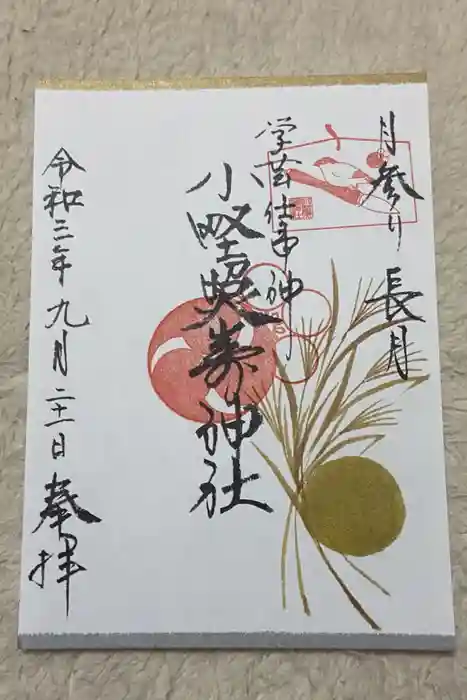 月参り 長月
学芸仕事神
小野照崎神社
令和三年九月二十一日 奉拝